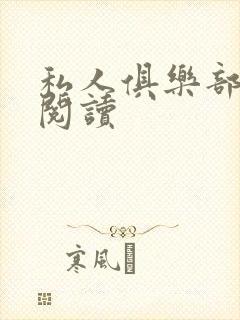 私人俱樂部
閱讀
寒風